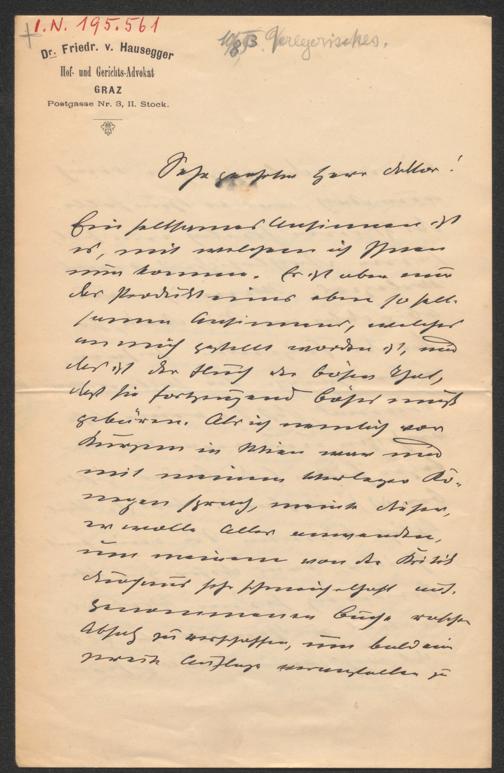 I.N. 195.561
10/8 93. Verlegerisches.
Dr. Friedr. v. Hausegger
Hof- und Gerichts-Advokat
GRAZ
Postgasse Nr. 3, II. Stock.
Sehr geehrter Herr Doktor!
Ein seltsames Ansinnen ist
es, mit welchem ich Ihnen
nun komme. Er ist aber nur
das Produkt eines eben so selt-
samen Ansinnens, welches
an mich gestellt worden ist, und
das ist der Fluch der bösen That,
daß sie fortzeugend Böses muß
gebären. Als ich nemlich vor
Kurzem in Wien war und
mit meinem Verleger Ko-
negen sprach, meinte dieser,
er wolle Alles anwenden,
um meinem von der Kritik
durchaus sehr schmeichelhaft auf-
genommenen Buche raschen
Absatz zu verschaffen, um bald ein
zweite Auflage veranstalten zu